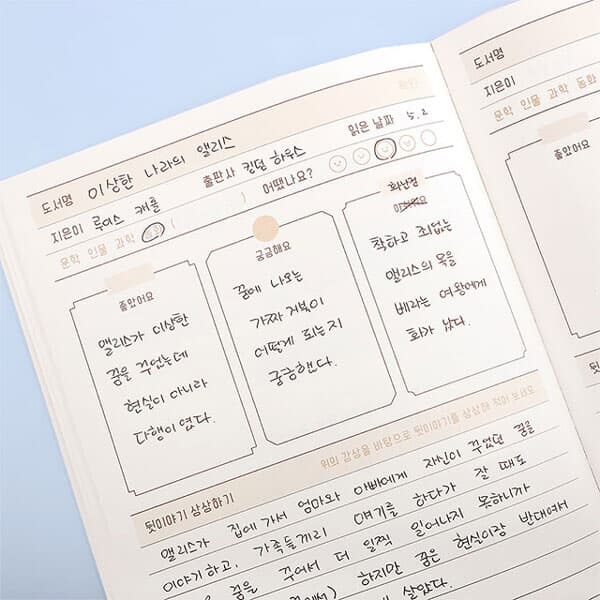 확인
도서명 이상한 나라의 앨리스 읽은 날짜 5.2
지은이 루이스 캐롤 출판사 킨더 하우스
문학 인물 과학 동화 ( ) 어땠나요?
좋았어요
앨리스가 이상한
꿈을 꾸었는데
현실이 아니라
다행이였다.
궁금해요
꿈에 나오는
가짜 거북이
어떻게 되는지
궁금했다.
화났점
착하고 죄없는
앨리스의 목을
베라는 여왕에게
화가 났다.
뒷이야기 상상하기 위의 감상을 바탕으로 뒷이야기를 상상해 적어 보세요
앨리스가 집에 가서 엄마와 아빠에게 자신이 꾸었던 꿈을
이야기하고, 가족들끼리 얘기를 하다가 잘 때도
꿈을 꾸어서 더 일찍 일어나지 못하니까
하지만 꿈은 현실이랑 반대여서
살았다.
도서명
지은이
문학 인물 과학 동화
좋았어요